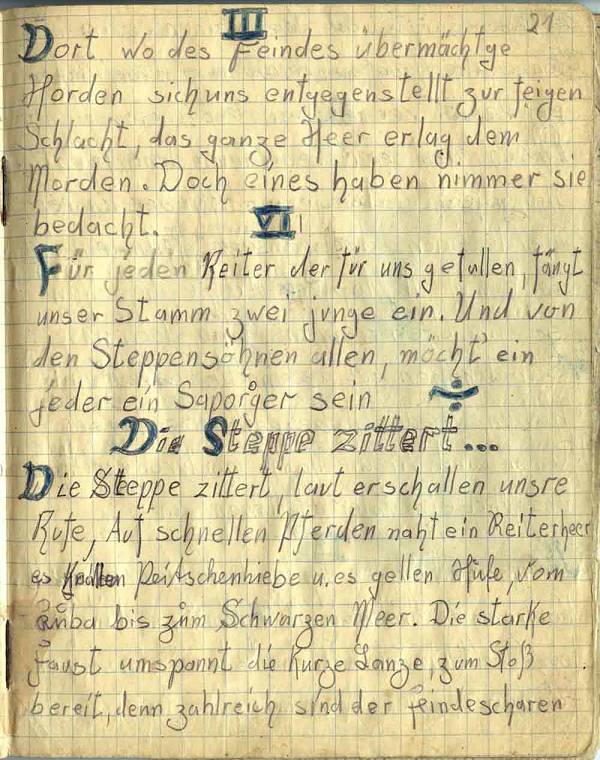 III
21
Dort wo des Feindes übermächtge
Horden sich uns entgegenstellt zur feigen
Schlacht, das ganze Heer erlag dem
Morden. Doch eines haben nimmer sie
bedacht.
VII
Für jeden Reiter der für uns gefallen, fängt
unser Stamm zwei junge ein. Und von
den Steppensöhnen allen, möcht' ein
jeder ein Saporoger sein
Die Steppe zittert...
Die Steppe zittert, laut erschallen unsre
Rufe, Auf schnellen Pferden naht ein Reiterheer
es knallen Peitschenhiebe u. es gellen Hufe, vom
bis zum Schwarzen Meer. Die starke
Faust umspannt die kurze Lanze, zum Stoß
bereit, denn zahlreich sind der Feindescharen